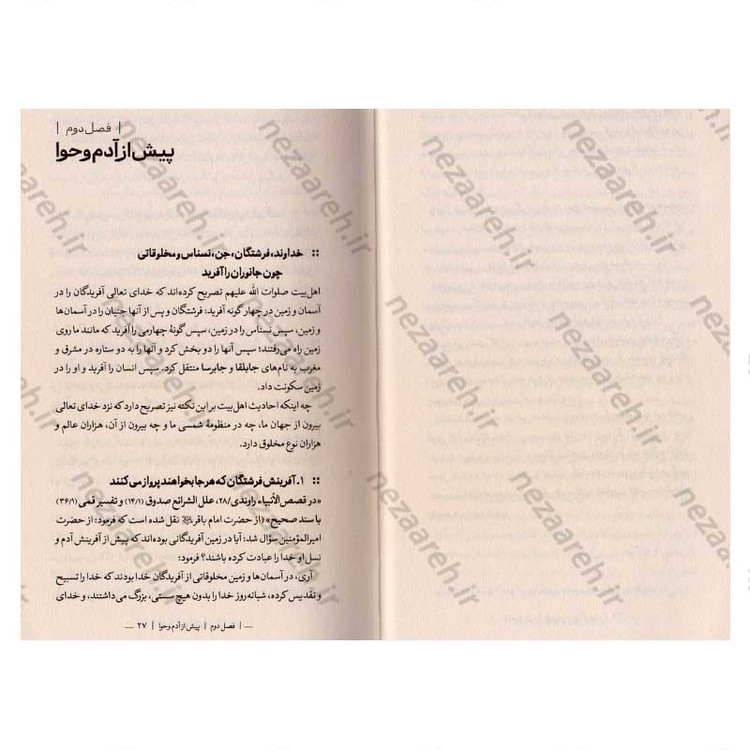 | فصل دوم |
پیش از آدم و حوا
:: خداوند، فرشتگان، جن، نسناس و مخلوقاتی
چون جانوران را آفرید
اهل‌بیت صلوات الله علیهم تصریح کرده‌اند که خدای تعالی آفریدگان را در
آسمان و زمین در چهار گونه آفرید: فرشتگان و پس از آنها جنیان را در آسمان‌ها
و زمین، سپس نسناس را در زمین، سپس گونهٔ چهارمی را آفرید که مانند ما روی
زمین راه می‌رفتند؛ سپس آنها را دو بخش کرد و آنها را به دو ستاره در مشرق و
مغرب به نام‌های جابلقا و جابرسا منتقل کرد. سپس انسان را آفرید و او را در
زمین سکونت داد.
چه اینکه احادیث اهل‌بیت بر این نکته نیز تصریح دارد که نزد خدای تعالی
بیرون از جهان ما، چه در منظومهٔ شمسی ما و چه بیرون از آن، هزاران عالم و
هزاران نوع مخلوق دارد.
:: ۱. آفرینش فرشتگان که هر جا بخواهند پرواز می‌کنند
«در قصص الأنبیاء راوندی/۲۸، علل الشرائع صدوق (۱۴/۱) و تفسیر قمی (۳۶/۱)
با سند صحیح» (از حضرت امام باقر نقل شده است که فرمود: از حضرت
امیرالمؤمنین سؤال شد: آیا در زمین آفریدگانی بوده‌اند که پیش از آفرینش آدم و
نسل او خدا را عبادت کرده باشند؟ فرمود:
آری، در آسمان‌ها و زمین مخلوقاتی از آفریدگان خدا بودند که خدا را تسبیح
و تقدیس کرده، شبانه‌روز خدا را بدون هیچ سستی، بزرگ می‌داشتند، و خدای
— | فصل دوم | پیش از آدم و حوا | ۲۷ —
nezaareh.ir
nezaareh.ir
nezaareh.ir
nezaareh.ir
nezaareh.ir
nezaareh.ir